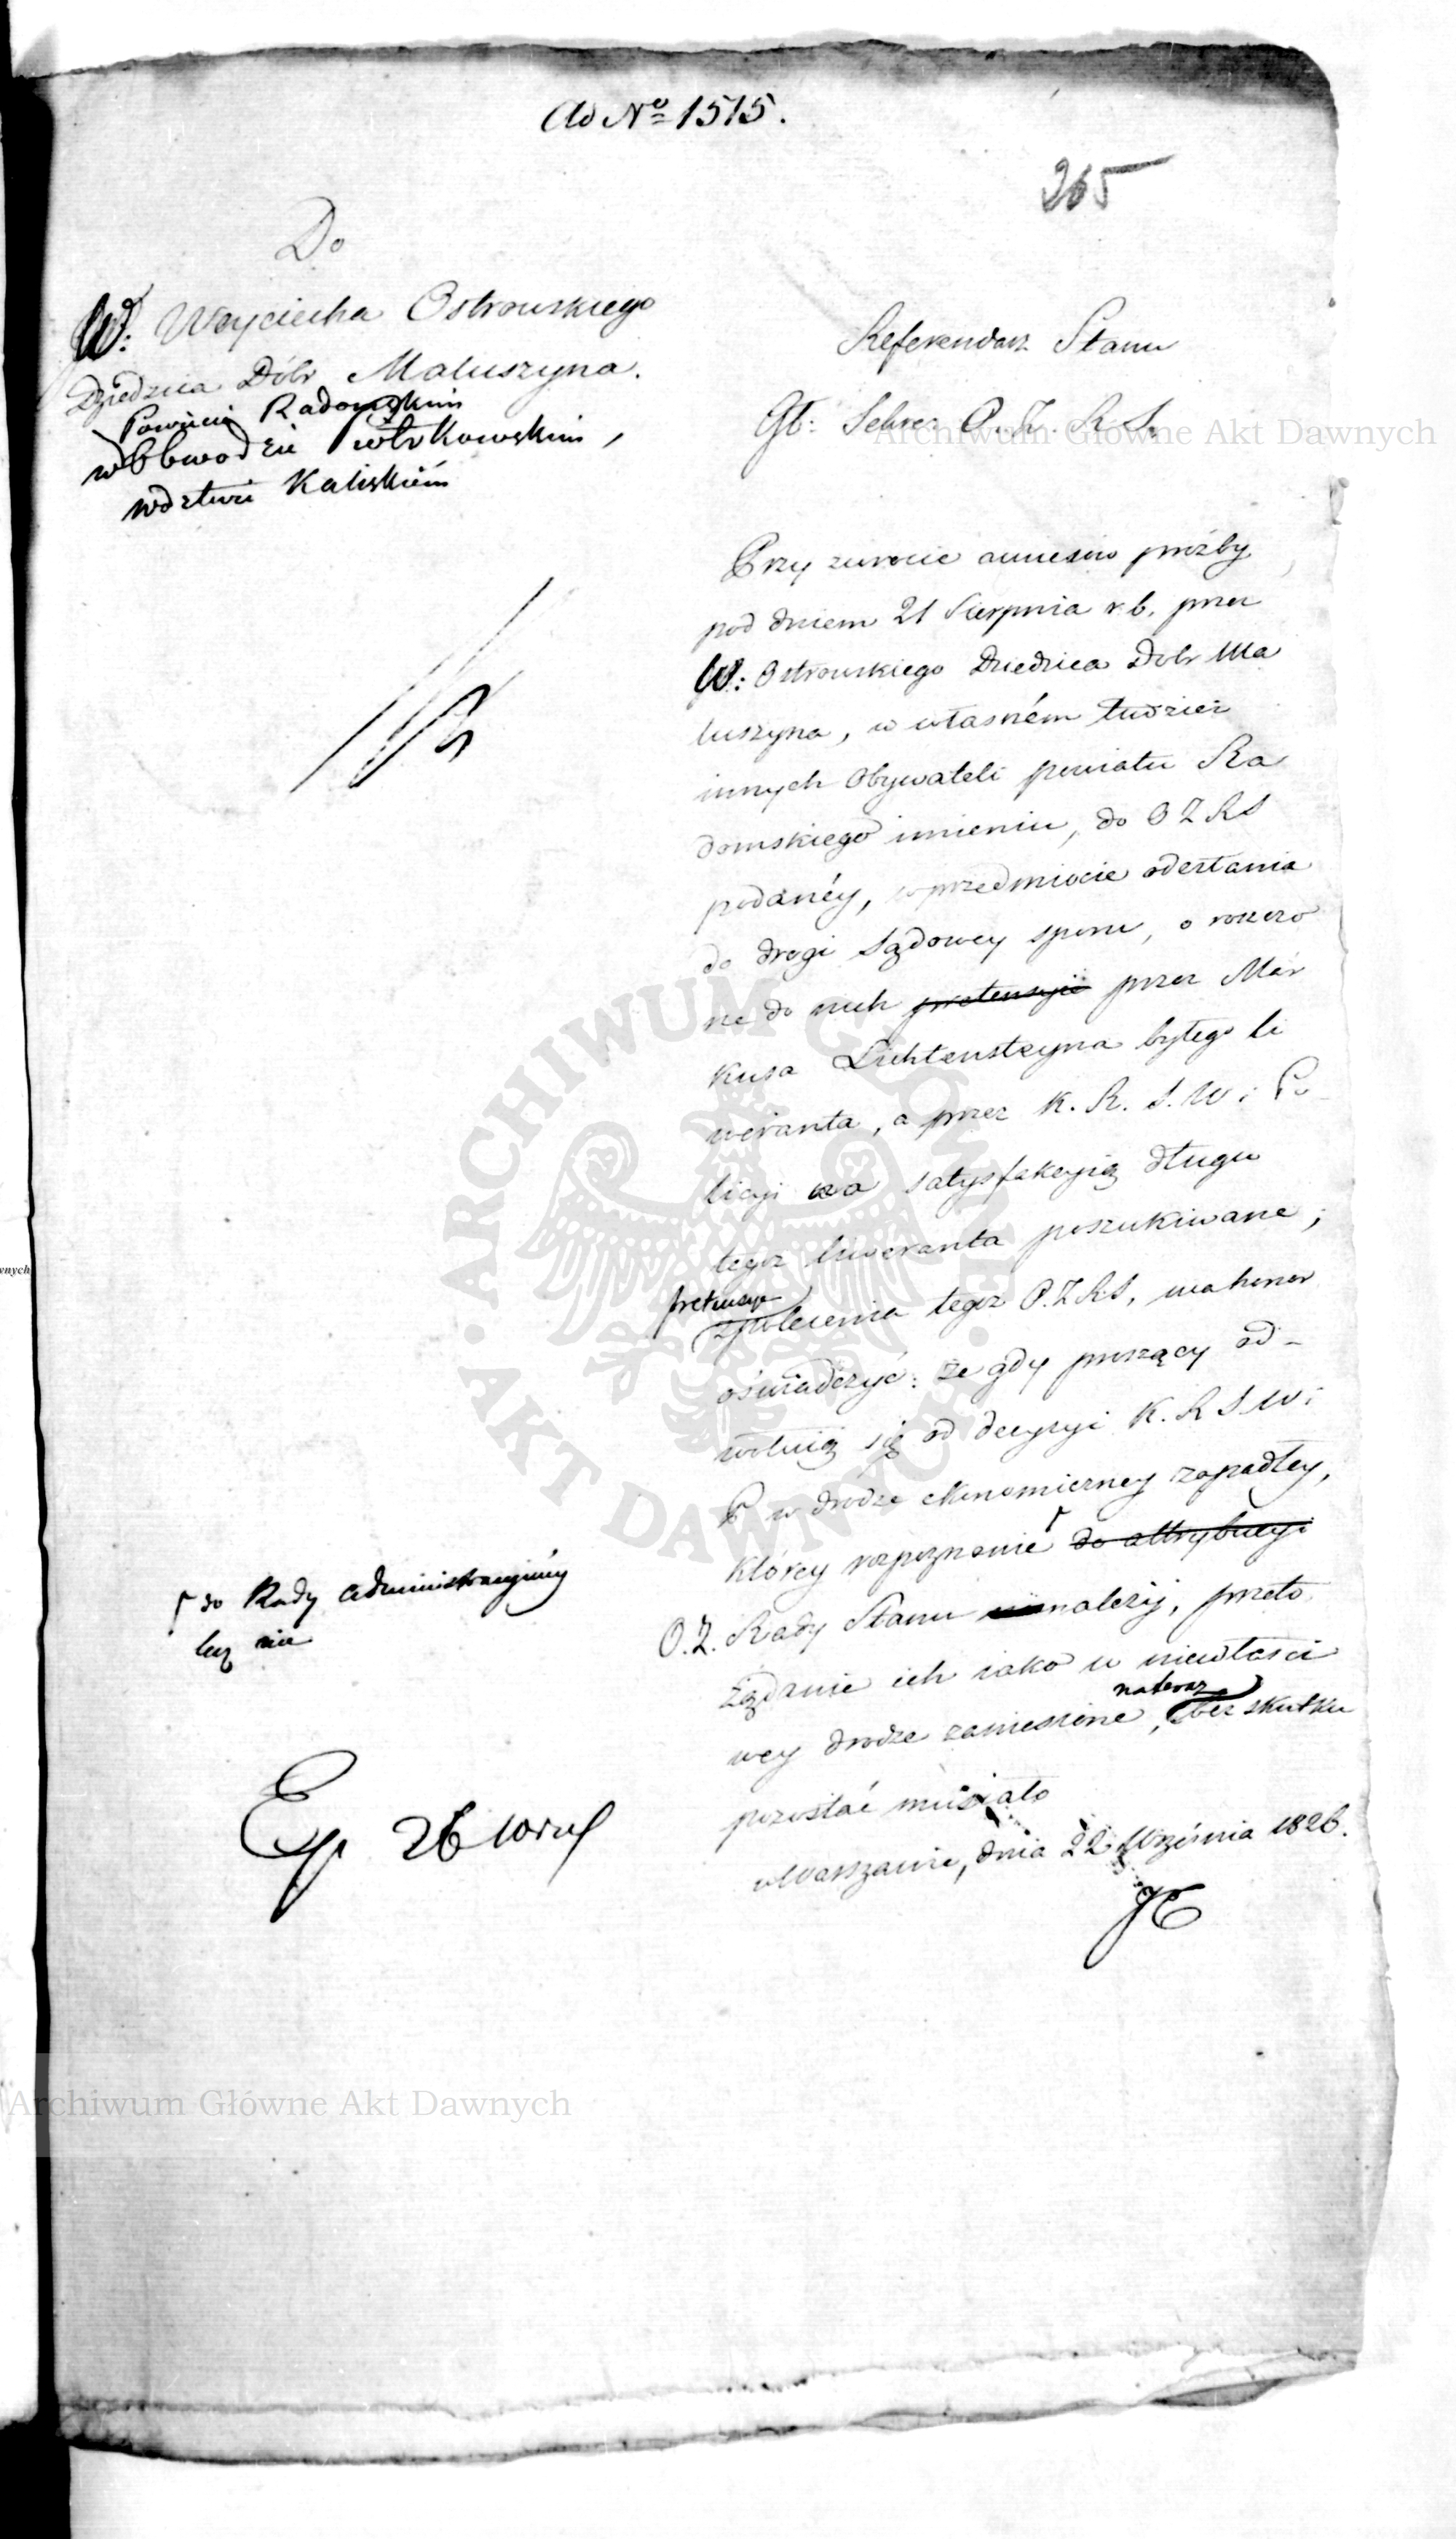 Ad No 1515.
265
Do
W: Woyciecha Ostrowskiego
Dziedzica Dóbr Maluszyna.
Powiecie Radomskim
w Obwodzie Piotrkowskim,
Wdztwie Kaliskiém
Referendarz Stanu
Gł: Sekret O. Z. R. S.
Archiwum Główne Akt Dawnych
Przy zwrocie annexów prożby
pod dniem 21 Sierpnia r. b. przez
W: Ostrowskiego Dziedzica Dobr Ma
luszyna, w własném tudzież
innych Obywateli powiatu Ra
domskiego imieniu, do O Z R S
podanéy, w przedmiocie odesłania
do drogi Sądowey sporu, o roszczo
ne do nich pretensyje przez Mar
kusa Lichtensteyna byłego li
weranta, a przez K. R. S. W: i Po
licyi na satysfakcyią długu
tegoż liweranta poszukiwane;
pretensye
z polecenia tegoż O. Z R S, ma honor
oświadczyć: że gdy proszący od-
wołuią się od decyzyi K. R S W i
P w drodze ekonomiczney zapadłey,
któréy rozpoznanie do attrybucyi
do Rady Administracyinéy
lecz nie
O. Z. Rady Stanu należy, przeto
żądanie ich iako w niewłaści
wey drodze zaniesione, bez skutku
nateraz
pozostać musiało
w Warszawie, dnia 22 Września 1826.
Ex 26
ARCHIWUM GŁÓWNE
AKT DAWNYCH
Archiwum Główne Akt Dawnych
wnych